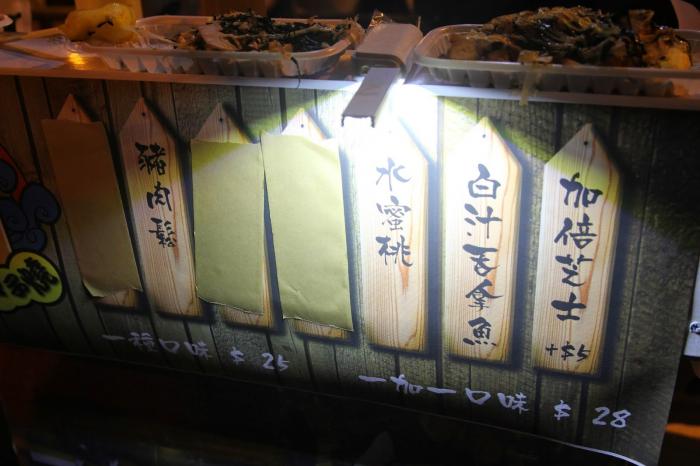 豬肉鬆
水蜜桃
白汁吞拿魚
加倍芝士
+$5
一種口味 $25
一加一口味 $28
燒